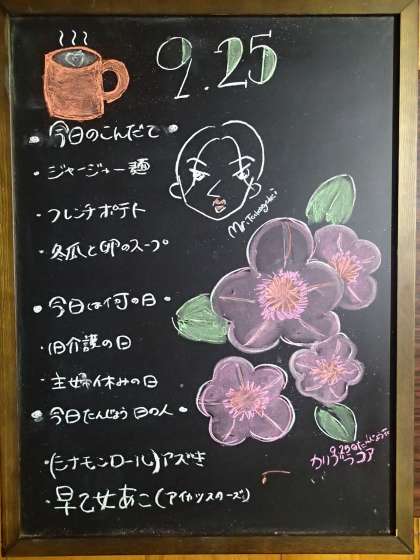 9.25
・今日のこんだて・
・ジャージャー麺
・フレンチポテト
・冬瓜と卵のスープ
・今日は何の日・
・旧介護の日
・主婦休みの日
・今日たんじょう日の人・
・(シナモンロール)アズキ
・早乙女あこ(アイカツスターズ!)
Mr.
9.25のたんじょう花
カリブラコア